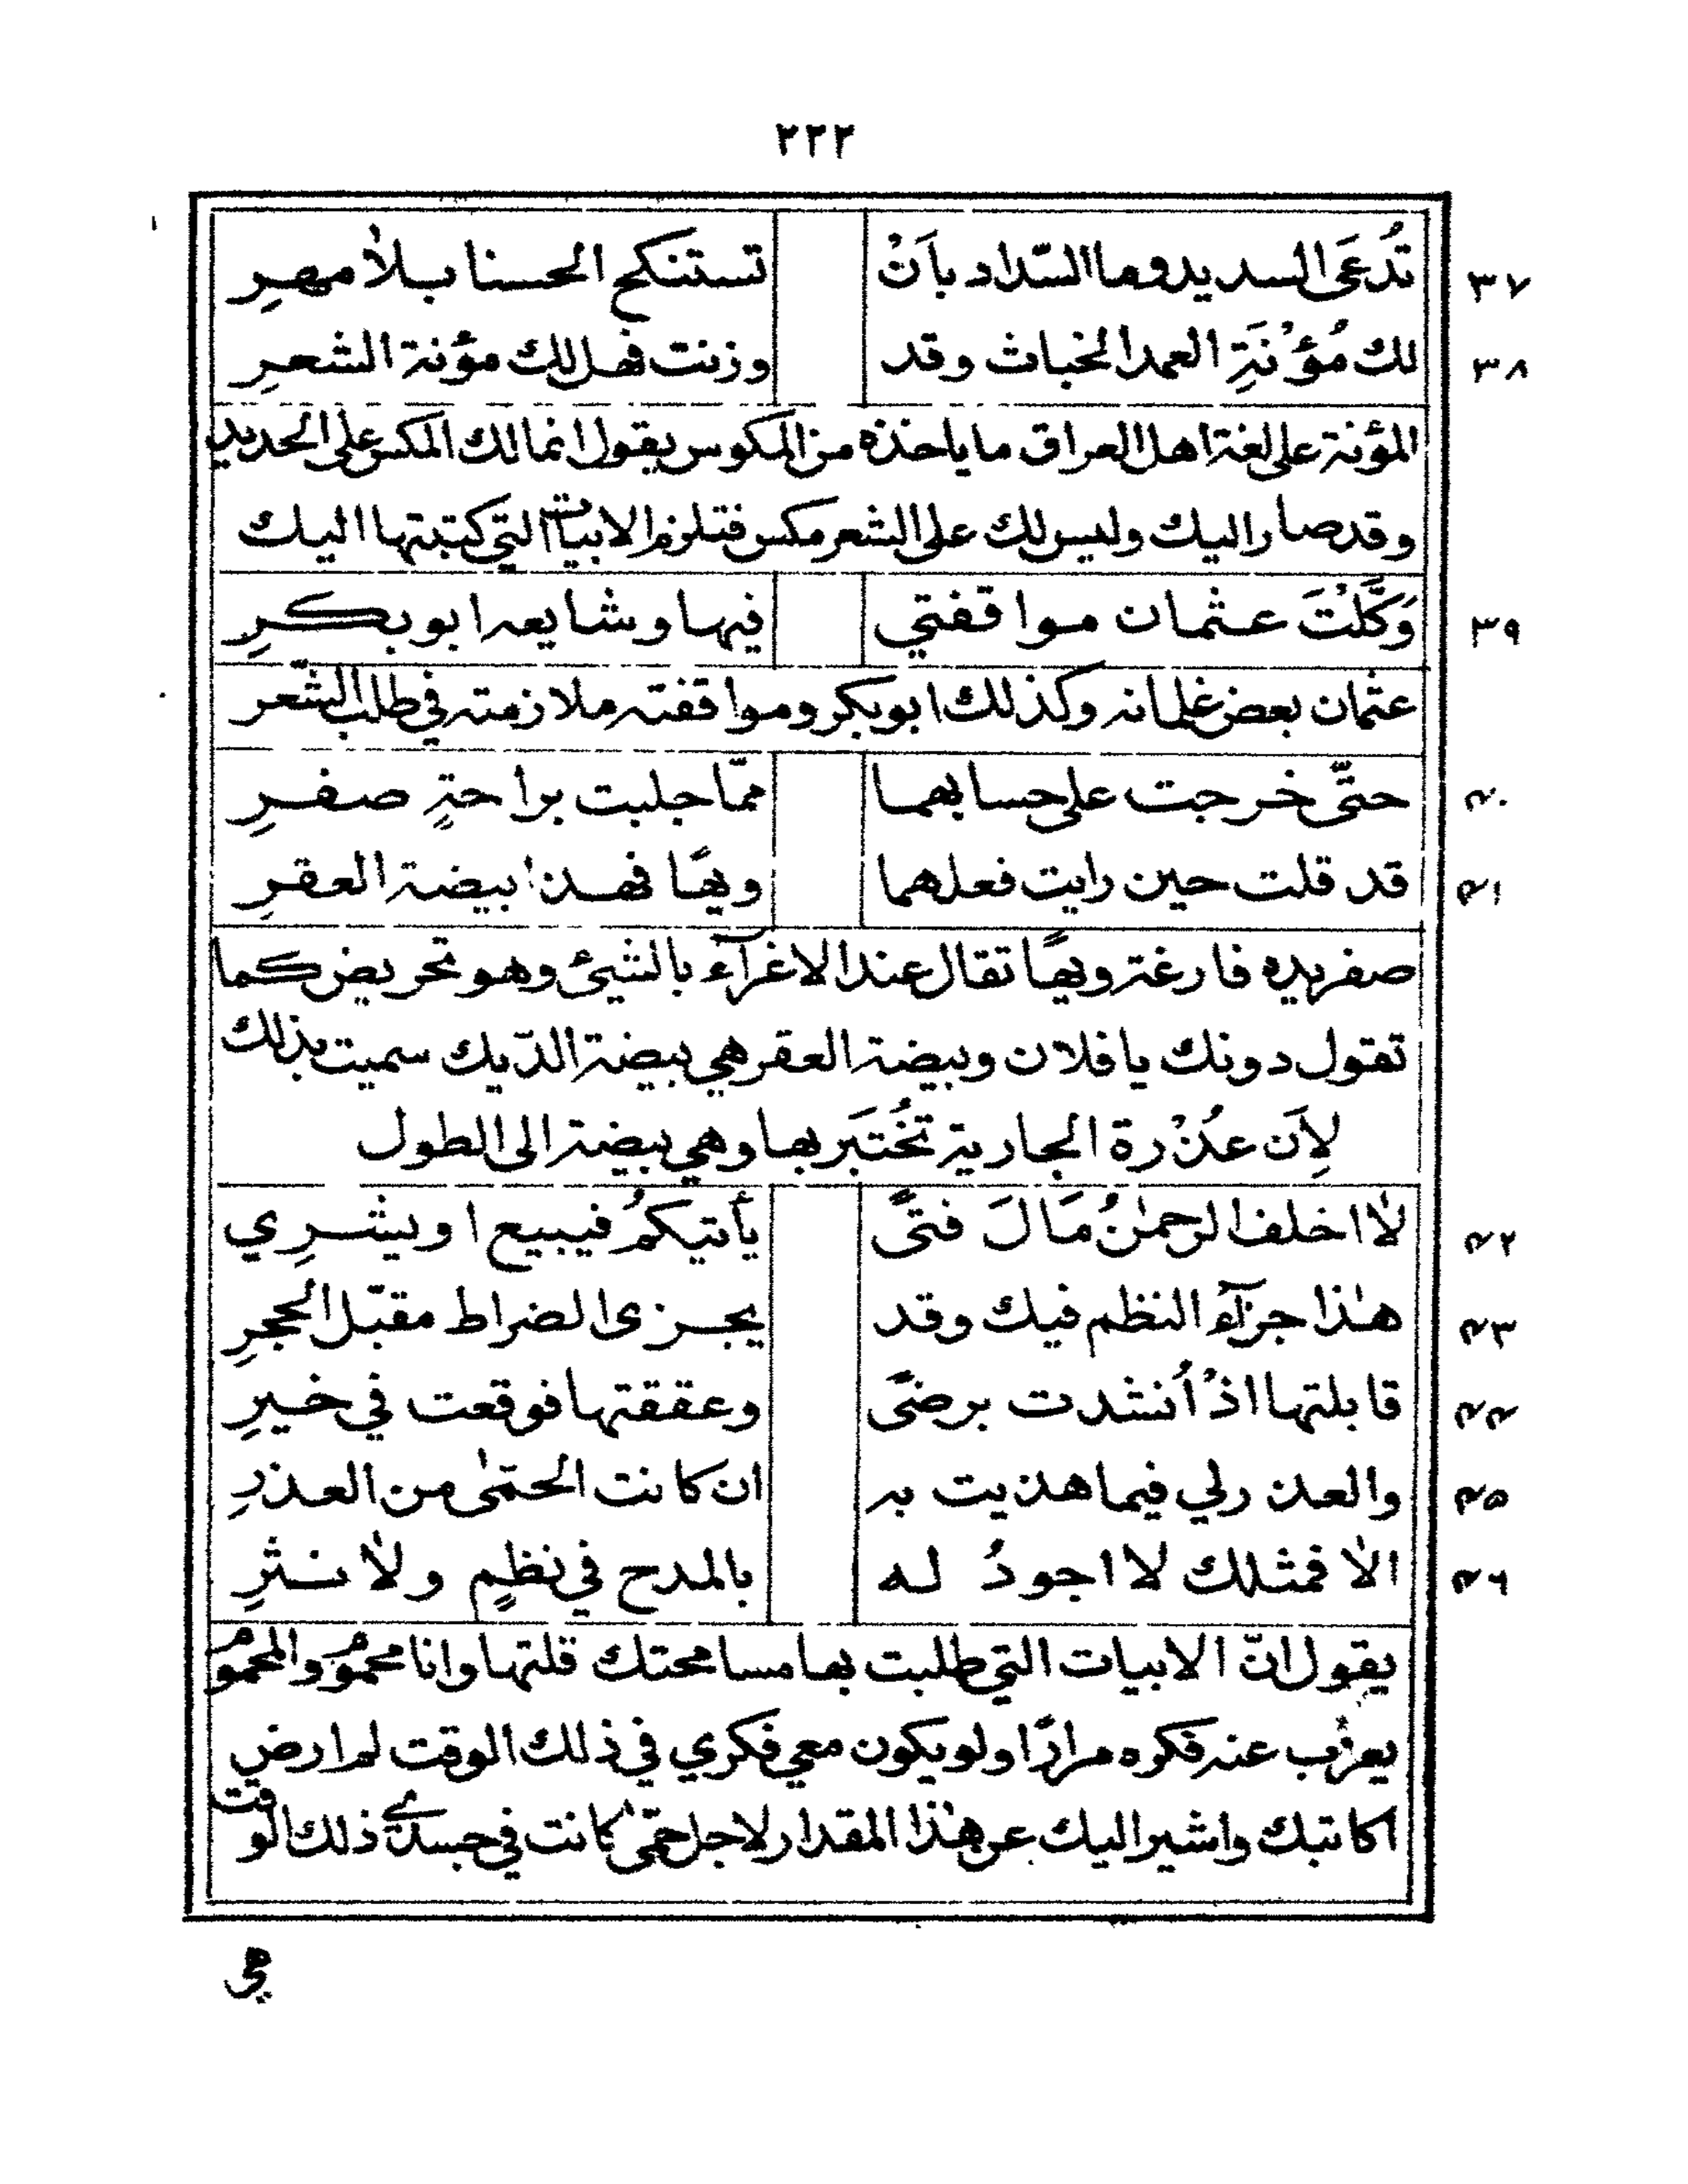 ٢٢٢
٣٧ تُدعَى السديد وما السّداد باَنْ تستنكح الحسنا بلاٰ مهرِ
٣٨ لك مُؤْنَةِ العمد الخباث وقد وزنت فهل لك مؤنة الشعرِ
المؤنة على لغة اهل العراق ما ياخذه من المكوس يقول انما لك المكس على الحديد
وقد صار اليك وليس لك على الشعر مكس فتلزم الابيات التي كتبتها اليك
٣٩ وَكَّلْتَ عثمان مواقفتي فيها وشايعه ابو بكرِ
عثمان بعض غلمانه وكذلك ابو بكر ومواقفته ملازمته في طلب الشّعر
٤٠ حتّى خرجت على حسابهما ممّا جلبت براحةٍ صفرِ
٤١ قد قلت حين رايت فعلهما ويهًا فهذا بيضة العقرِ
صفر يده فارغة ويهًا تقال عند الاغرآء بالشيئ وهو تحريض كما
تقول دونك يا فلان وبيضة العقر هي بيضة الدّيك سميت بذلك
لِاَن عُذْرة الجارية تُخْتَبَر بها وهي بيضة الى الطول
٤٢ لاٰ اخلف الرحمٰنُ مَالَ فتًى يأتيكمُ فيبيع او يشرِي
٤٣ هٰذا جزآءُ النظم فيك وقد يجزى الضراط مقبّل الحجرِ
٤٤ قابلتها اذْ اُنشدت برضًى وعققتها فوقعت في خيرِ
٤٥ والعذر لي فيما هذيت به ان كانت الحمّىٰ من العذرِ
٤٦ الاٰ فمثلك لا اجودُ له بالمدح في نظمٍ ولاٰ نثرِ
يقول انّ الابيات التي طلبت بها مسامحتك قلتها وانا محموم والمحموم
يعزُب عنه فكره مرارًا ولو يكون معي فكري في ذلك الوقت لم ارض
اكاتبك واشير اليك عن هٰذا المقدار لاجل حمّىٰ كانت في جسدي ذلك الوقت
هي